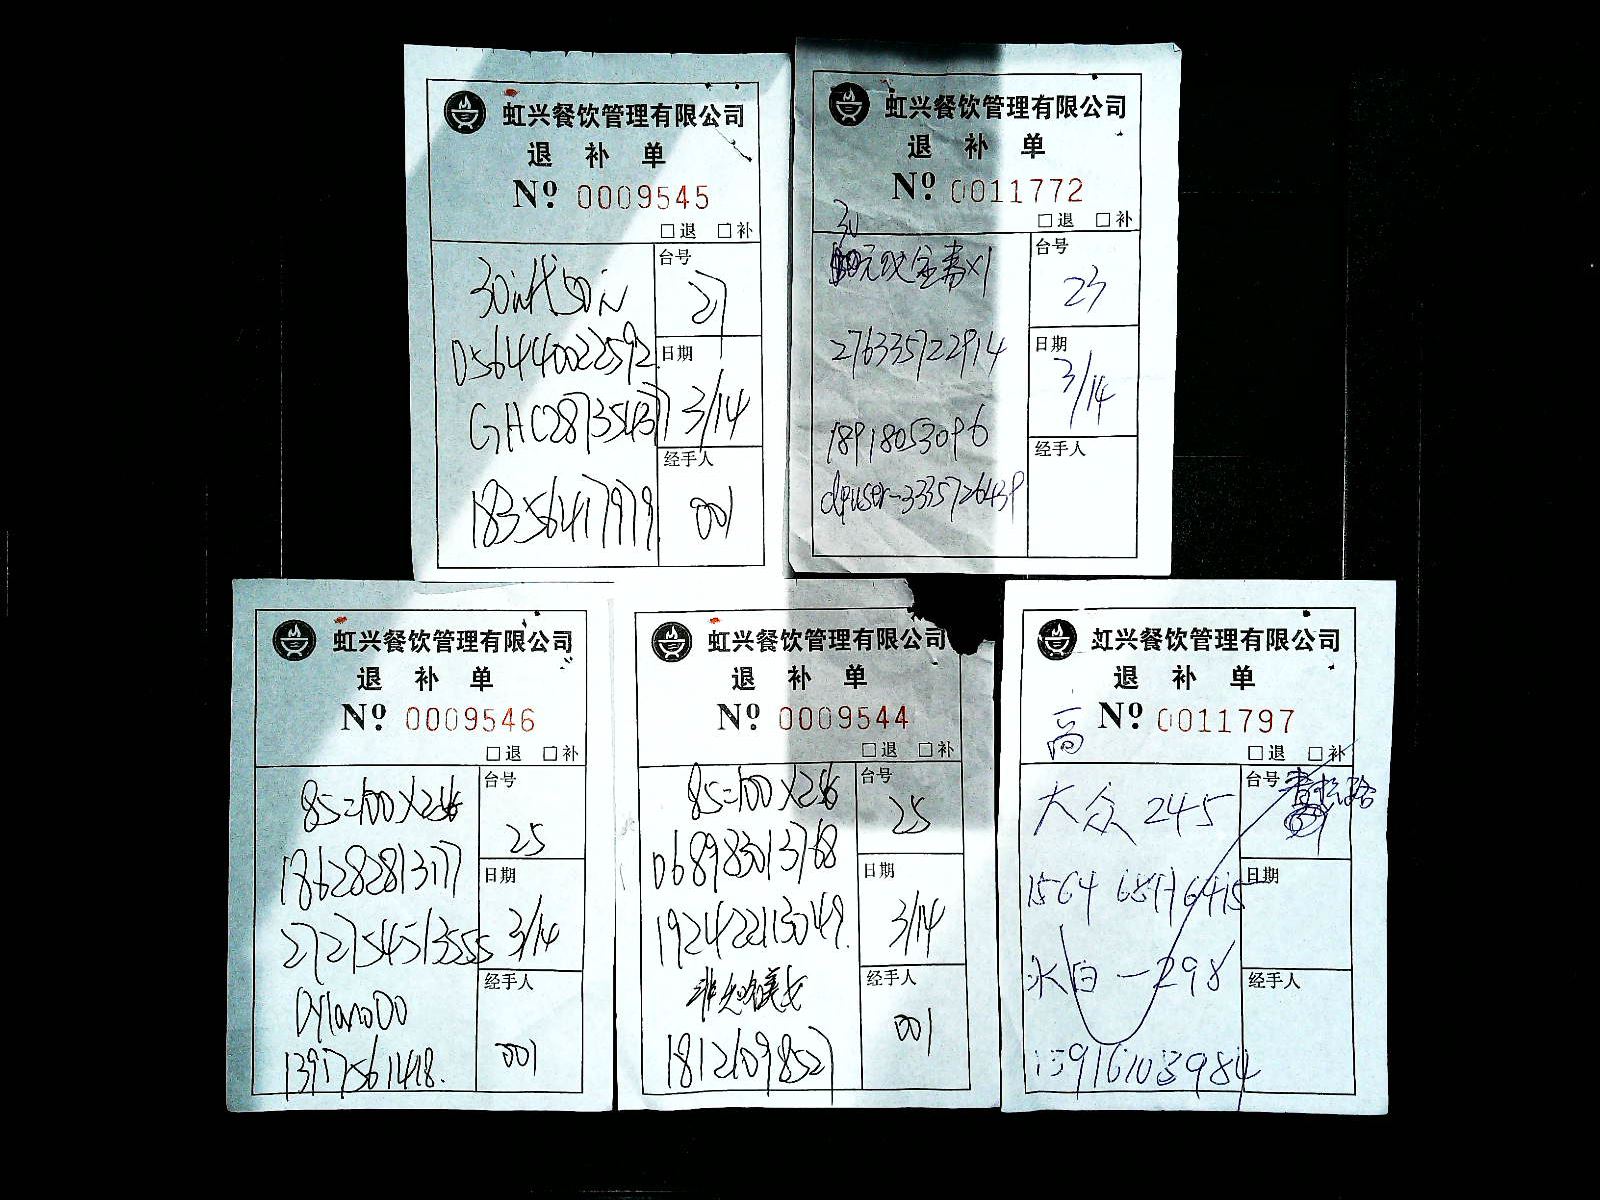 虹兴餐饮管理有限公司
退 补 单
Nº 0009545
□退 □补
台号
27
30元代50元
0564440022592
日期
3/14
GHC287354137
经手人
18356417979
001
虹兴餐饮管理有限公司
退 补 单
Nº 0011772
□退 □补
30
台号
23
元 套x1
276335722914
日期
3/14
18918053096
经手人
dpuser-3335726439
虹兴餐饮管理有限公司
退 补 单
Nº 0009546
□退 □补
85=100X2
台号
25
18628281317
日期
3/14
2727545135
DylanoDo
经手人
13917561418.
001
虹兴餐饮管理有限公司
退 补 单
Nº 0009544
□退 □补
85=100X2
台号
25
068983013768
日期
3/14
192422113049.
经手人
18121098527
001
虹兴餐饮管理有限公司
退 补 单
Nº 0011797
□退 □补
台号
大众 245
1564
日期
冰白一298
经手人
13916103984